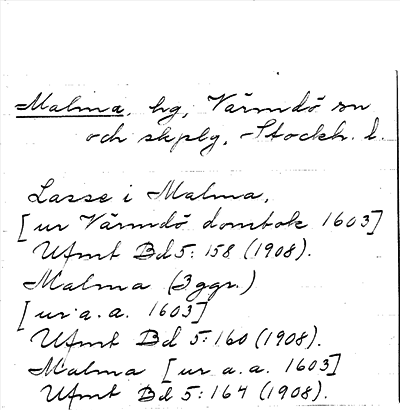 Malma, hg, Värmdö sn
och skplg, Stockh. l.
Lasse i Malma,
[ur Värmdö dombok 1603]
Ufmt Bd 5: 158 (1908).
Malma (3 ggr.)
[ur a. a. 1603]
Ufmt Bd 5: 160 (1908).
Malma [ur a. a. 1603]
Ufmt Bd 5: 164 (1908).